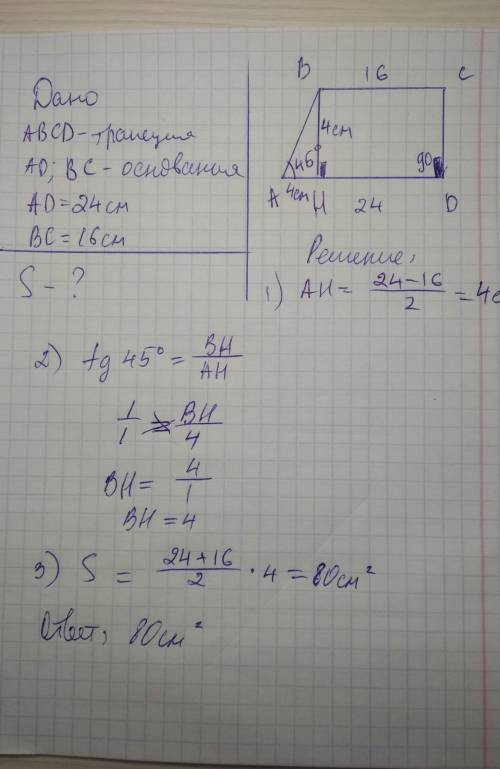 Дано
ABCD - трапеция
AD; BC - основания
AD = 24 см
BC = 16 см
S - ?
B 16 C
4 см
45°
90
A 4 см H 24 D
Решение:
1) AH = \frac{24-16}{2} = 4 с
2) tg 45° = \frac{BH}{AH}
\frac{1}{1} = \frac{BH}{4}
BH = \frac{4}{1}
BH = 4
3) S = \frac{24+16}{2} · 4 = 80 см²
Ответ: 80 см²